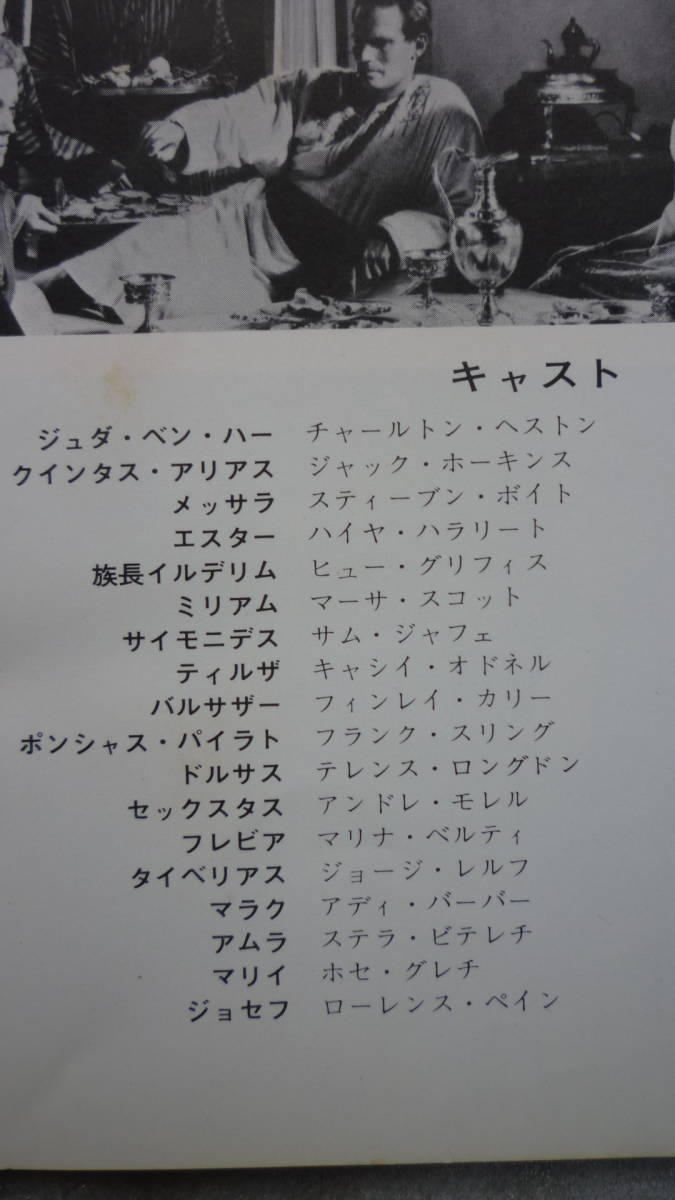 キャスト
ジュダ・ベン・ハー チャールトン・ヘストン
クインタス・アリアス ジャック・ホーキンス
メッサラ スティーブン・ボイト
エスター ハイヤ・ハラリート
族長イルデリム ヒュー・グリフィス
ミリアム マーサ・スコット
サイモニデス サム・ジャフェ
ティルザ キャシイ・オドネル
バルサザー フィンレイ・カリー
ポンシャス・パイラト フランク・スリング
ドルサス テレンス・ロングドン
セックスタス アンドレ・モレル
フレビア マリナ・ベルティ
タイベリアス ジョージ・レルフ
マラク アディ・バーバー
アムラ ステラ・ビテレチ
マリイ ホセ・グレチ
ジョセフ ローレンス・ペイン